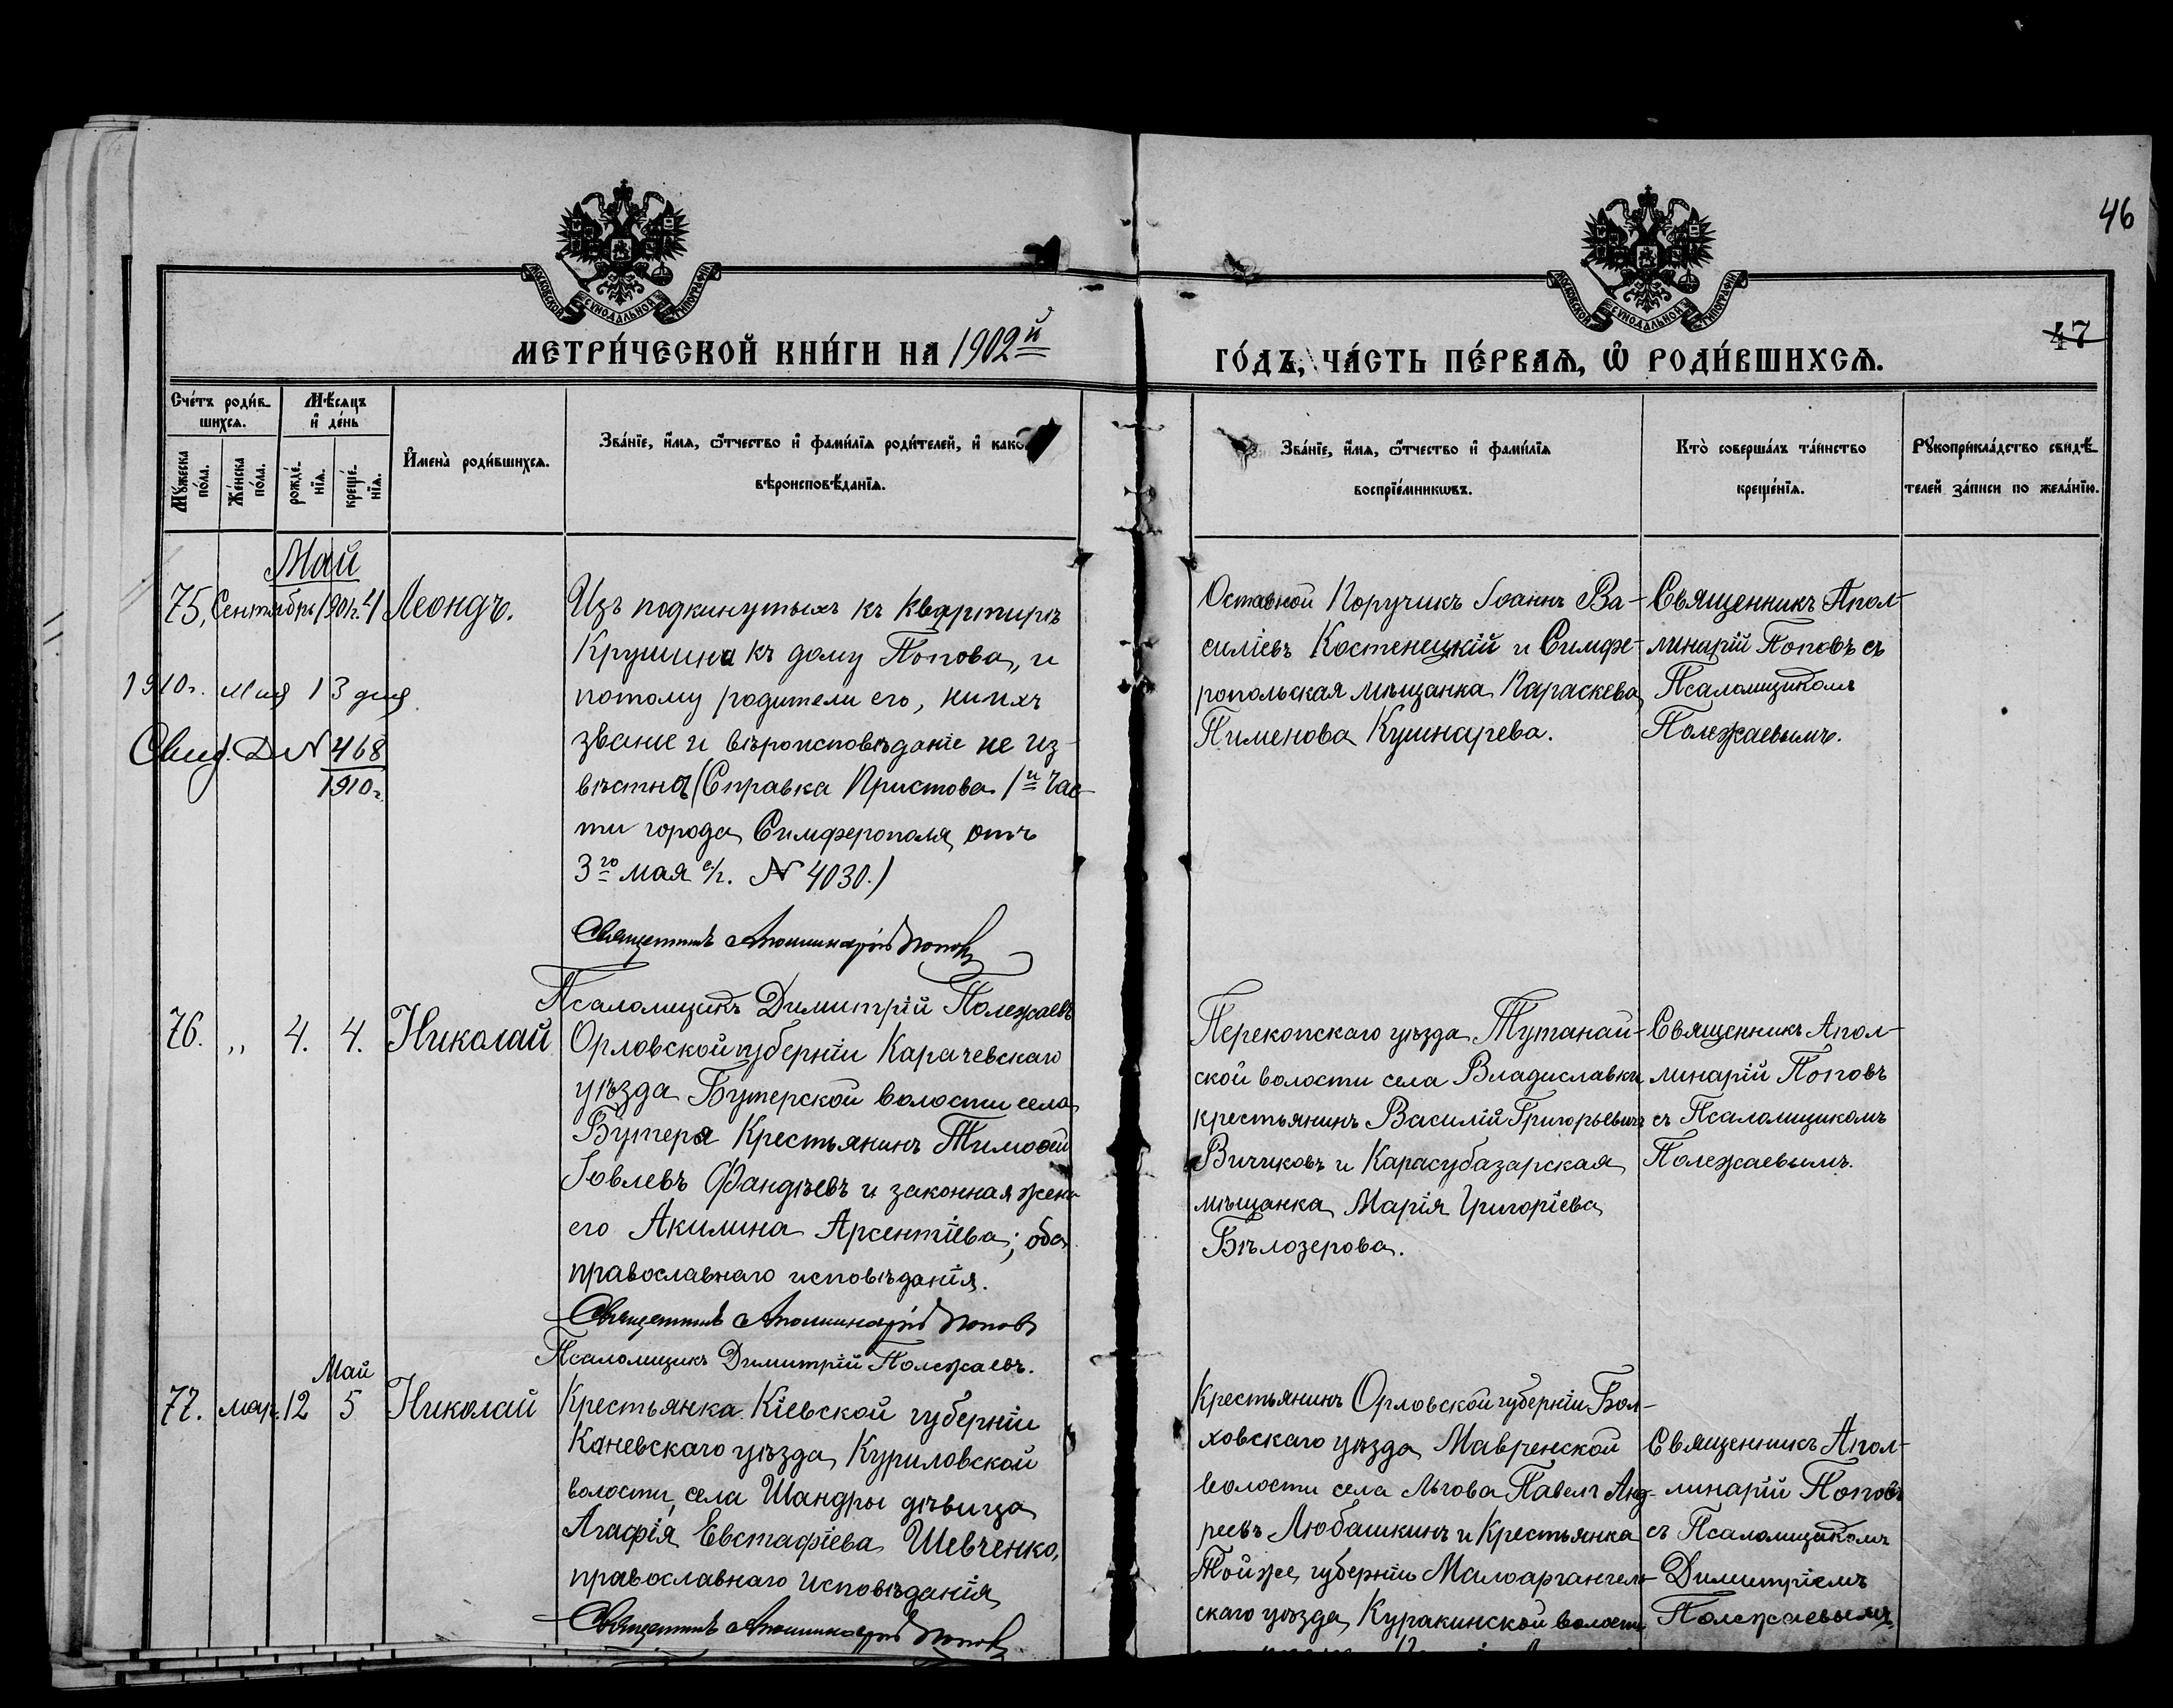 46
МОСКОВСКОЙ СѴНОДАЛЬНОЙ ТИПОГРАФІИ
МОСКОВСКОЙ СѴНОДАЛЬНОЙ ТИПОГРАФІИ
47
МЕТРИ́ЧЕСКОЙ КНИ́ГИ НА 1902й
ГО́ДЪ, ЧА́СТЬ ПЕ́РВАѦ, Ѡ РОДИ́ВШИХСѦ.
Сче́тъ роди́в-
шихся.
Мѣ́сяцъ
и де́нь
Мꙋ́жеска по́ла.
Же́нска по́ла.
рожде́-
нїя.
креще́-
нїя.
Имена̀ роди́вшихся.
Зва́нїе, и́мя, ѻ́тчество и фами́лїя роди́телей, и како
вѣроисповѣ́данїя.
Зва́нїе, и́мя, ѻ́тчество и фами́лїя
воспрїе́мникѡвъ.
Кто̀ соверша́лъ та́инство
креще́нїя.
Рꙋкоприкла́дство свидѣ́-
телей за́писи по жела́нїю.
Май
75. Сентябрь 1901г. 4 Леонидъ.
1910г. мая 13 дня
Свид. Д N 468
1910г.
Изъ подкинутыхъ къ квартирѣ
Крушина къ дому Попова, и
потому родители его, ни ихъ
званіе и вѣроисповѣданіе не из-
вѣстны (Справка Пристова 1й Час-
ти города Симферополя отъ
3го мая с/г. N 4030.)
Священникъ Аполлинарій Поповъ
Псаломщикъ Димитрій Полежаевъ
Оставной Поручикъ Іоаннъ Ва-
силіевъ Костенецкій и Симфе-
ропольская мѣщанка Параскева
Пименова Кушнарева.
Священникъ Апол-
линарій Поповъ съ
Псаломщикомъ
Полежаевымъ.
76. „ 4. 4. Николай
Орловской губерніи Карачевскаго
уѣзда Бутерской волости села
Бутера Крестьянинъ Тимоѳей
Іовлевъ Фандѣевъ и законная жена
его Акилина Арсентіева; оба
православнаго исповѣданія.
Священникъ Аполлинарій Поповъ
Псаломщикъ Димитрій Полежаевъ.
Перекопскаго уѣзда Тутанай-
ской волости села Владиславки
крестьянинъ Василій Григорьевичъ
Вичиковъ и Карасубазарская
мѣщанка Марія Григоріева
Бѣлозерова.
Священникъ Апол-
линарій Поповъ
съ Псаломщикомъ
Полежаевымъ.
Май
77. мар. 12 5 Николай
Крестьянка Кіевской губерніи
Каневскаго уѣзда Куриловской
волости, села Шандры дѣвица
Агафія Евстафіева Шевченко,
православнаго исповѣданія
Священникъ Аполлинарій Поповъ
Крестьянинъ Орловской губерніи Бол-
ховскаго уѣзда Мавренской
волости села Льгова Павелъ Анд-
реевъ Любашкинъ и Крестьянка
Той же губерніи Малоархангель-
скаго уѣзда Куракинской волости
Священникъ Апол-
линарій Поповъ
съ Псаломщикомъ
Димитріемъ
Полежаевымъ